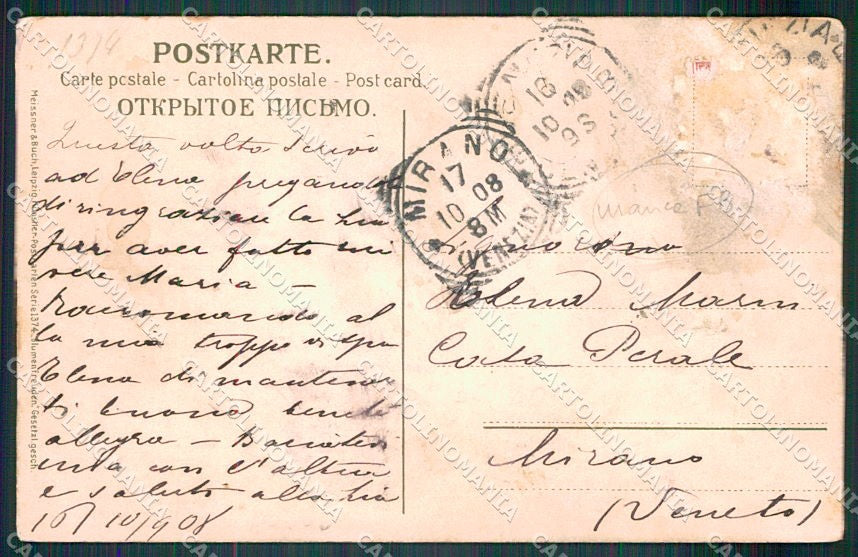 1374
POSTKARTE.
Carte postale - Cartolina postale - Post card
ОТКРЫТОЕ ПИСЬМО.
Meissner & Buch, Leipzig. Künstler-Postkarten Serie 1374. Blumenfreuden. Gesetzl. gesch.
Questa volta scrivo
ad Elena pregandola
di ringraziare la zia
per aver fatto
Maria -
Raccomando al
la mia troppo
Elena di mantener
ti buona
allegra -
con l'altra
e saluti alla zia
16/10/908
16
10 08
MIRANO
17
10 08
8M
(VENEZIA)
Signorina
Elena Marin
Casa Perale
Mirano
(Veneto)
CARTOLINOMANIA